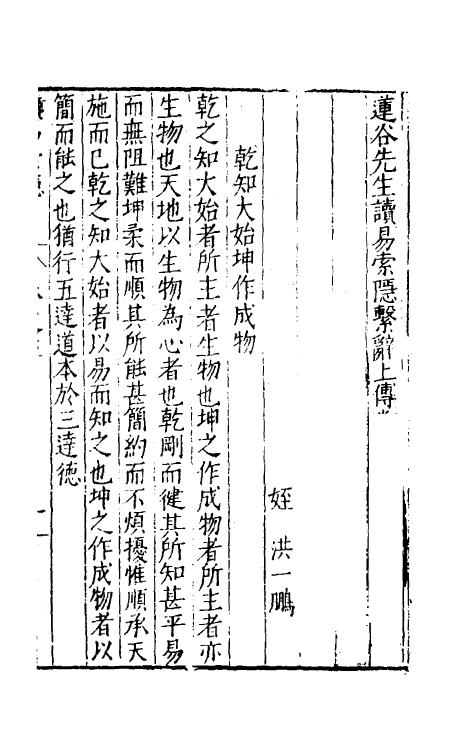 蓮谷先生讀易索隱繫辭上傳
姪洪一鵬
乾知大始坤作成物
乾之知大始者所主者生物也坤之作成物者所主者亦
生物也天地以生物為心者也乾剛而健其所知甚平易
而無阻難坤柔而順其所能甚簡約而不煩擾惟順承天
施而已乾之知大始者以易而知之也坤之作成物者以
簡而能之也猶行五達道本於三達德